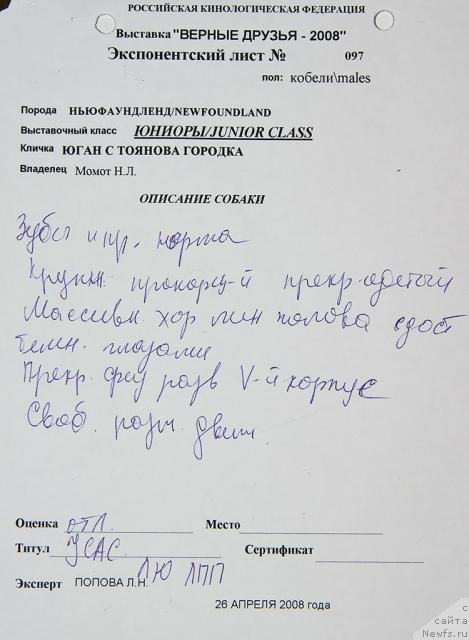 РОССИЙСКАЯ КИНОЛОГИЧЕСКАЯ ФЕДЕРАЦИЯ
Выставка "ВЕРНЫЕ ДРУЗЬЯ - 2008"
Экспонентский лист № 097
пол: кобели\males
Порода НЬЮФАУНДЛЕНД/NEWFOUNDLAND
Выставочный класс ЮНИОРЫ/JUNIOR CLASS
Кличка ЮГАН С ТОЯНОВА ГОРОДКА
Владелец Момот Н.Л.
ОПИСАНИЕ СОБАКИ
Зубы и пр. норма
Крупн. пропорц-й прекр. одетый
Массивн. хор лин голова с дост
темн. глазами
Прекр. фру разв V-й корпус
Своб. разм. движ.
Оценка отл. Место
Титул JCAC Сертификат
ЛЮ ЛПП
Эксперт ПОПОВА Л.Н.
26 АПРЕЛЯ 2008 года
с
сайта
Newfs.ru